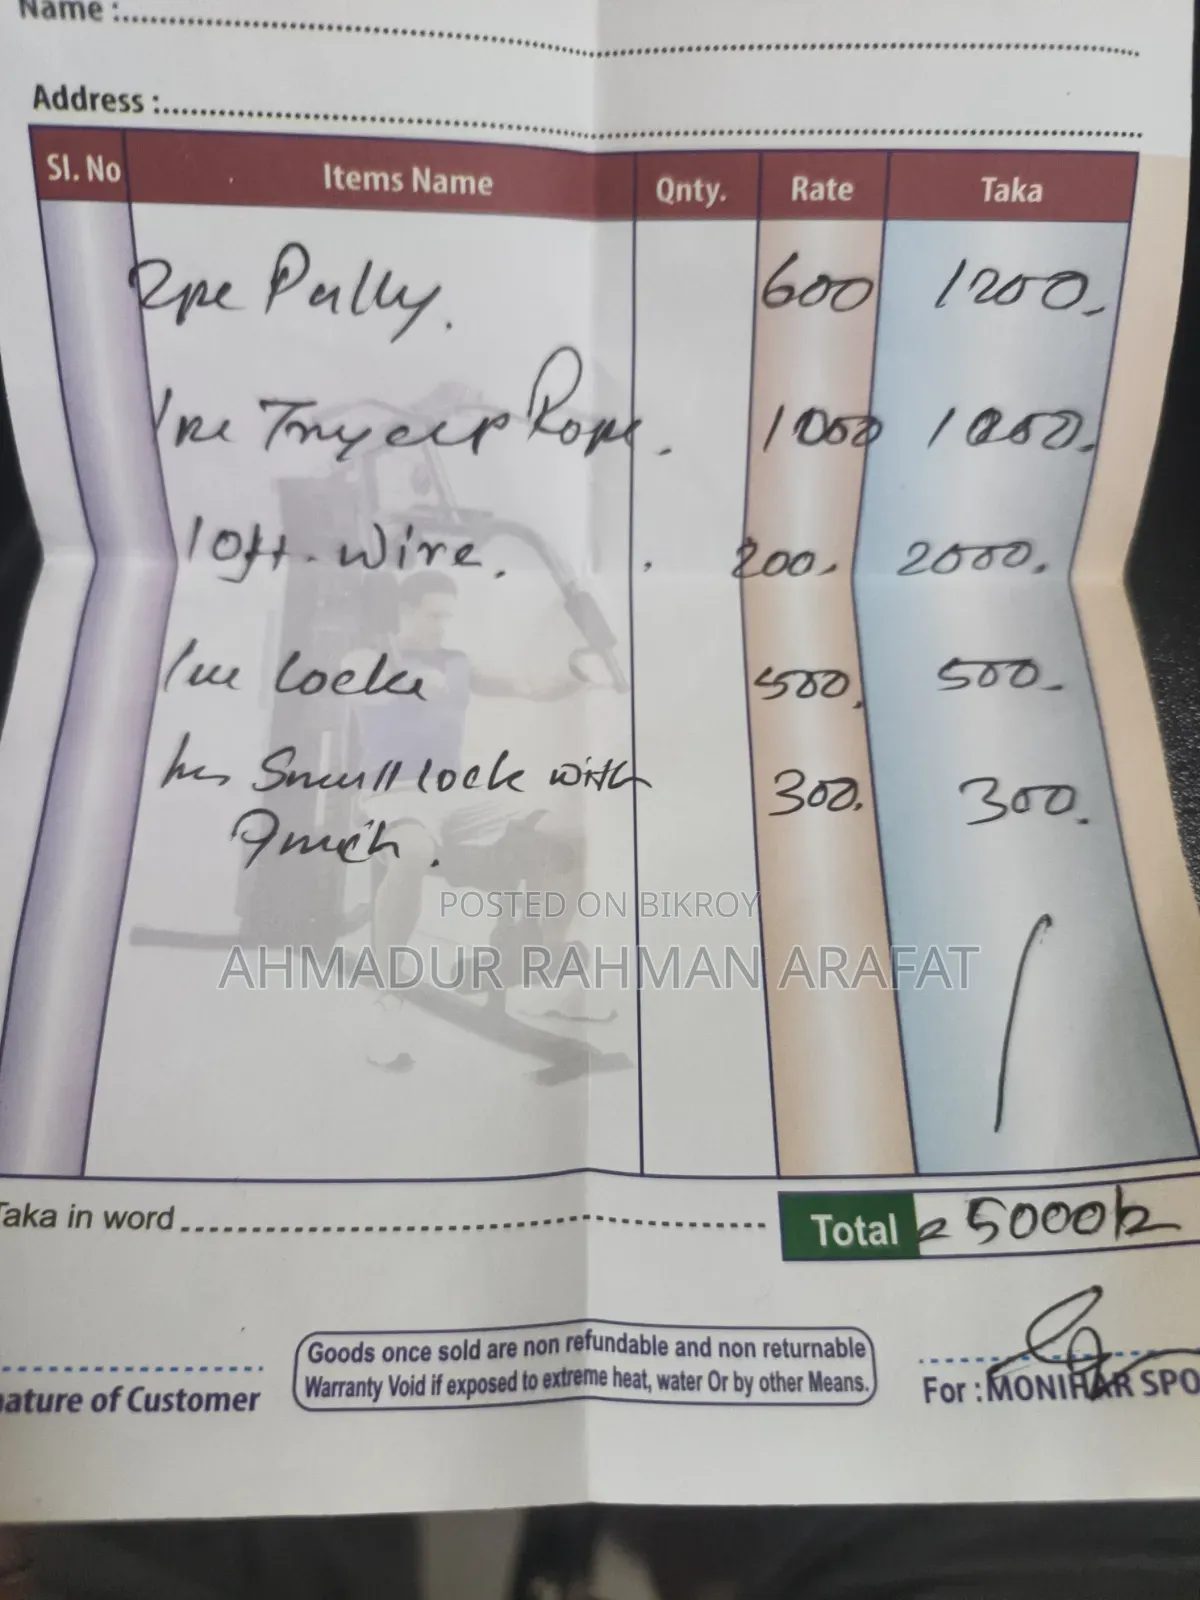 Name :
Address :
Sl. No Items Name Qnty. Rate Taka
2pc Pully. 600 1200.
1pc Trycep Rope. 1000 1000.
10ft. wire. 200. 2000.
1pc Locke 500. 500.
Small lock with 300. 300.
POSTED ON BIKROY
AHMADUR RAHMAN ARAFAT
Taka in word Total = 5000
Goods once sold are non refundable and non returnable
Warranty Void if exposed to extreme heat, water Or by other Means.
nature of Customer For : MONIHAR SPO